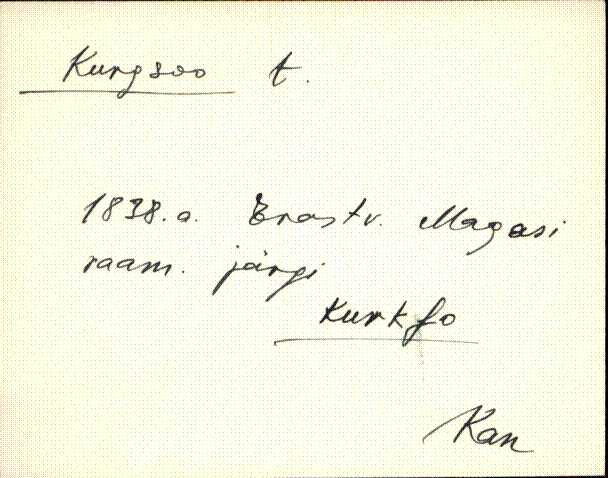 Kurgsoo t.
1838.a. Erastv. Magasi
raam. järgi
Kurkſo
Kan